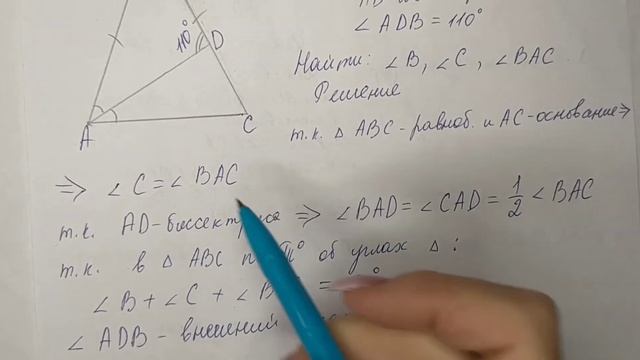 110°
D
A
C
∠ ADB = 110°
Найти: ∠ B, ∠ C, ∠ BAC
Решение
т.к. Δ ABC - равноб. и AC - основание ⇒
⇒ ∠ C = ∠ BAC
т.к. AD - биссектриса ⇒ ∠ BAD = ∠ CAD = 1/2 ∠ BAC
т.к. в Δ ABC об углах Δ :
∠ B + ∠ C + ∠ =
∠ ADB - внешний